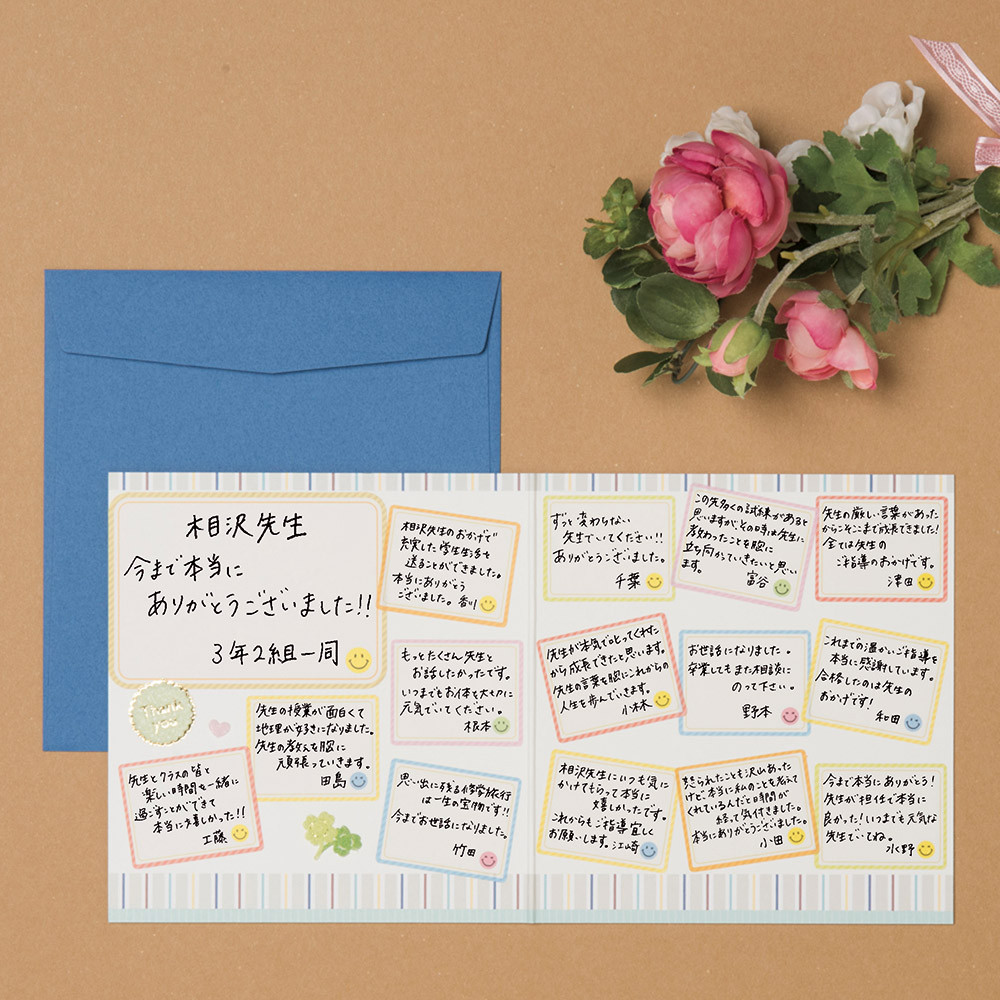 相沢先生
今まで本当に
ありがとうございました!!
3年2組一同
Thank
you
先生とクラスの皆と
楽しい時間を一緒に
過ごすことができて
本当に嬉しかった!!
工藤
先生の授業が面白くて
地理が好きになりました。
先生の教えを胸に
頑張っていきます。
田島
相沢先生のおかげで
充実した学生生活を
送ることができました。
本当にありがとう
ございました。香川
もっとたくさん先生と
お話したかったです。
いつまでもお体を大切に
元気でいてください。
根本
思い出に残る修学旅行
は一生の宝物です!!
今までお世話になりました。
竹田
ずっと変わらない
先生でいてください!!
ありがとうございました。
千葉
この先多くの試練があると
思いますが、その時は先生に
教わったことを胸に
立ち向かっていきたいと思い
ます。 富谷
先生の厳しい言葉があった
からこそここまで成長できました!
全ては先生の
ご指導のおかげです。
澤田
先生が本気で叱ってくれた
から成長できたと思います。
先生の言葉を胸にこれからの
人生を歩んでいきます。
小林
お世話になりました。
卒業してもまた相談に
のって下さい。
野本
これまでの温かいご指導を
本当に感謝しています。
合格したのは先生の
おかげです!
和田
相沢先生にいつも気に
かけてもらって本当に
嬉しかったです。
これからもご指導宜しく
お願いします。江崎
怒られたことも沢山あった
けど本当に私のことを考えて
くれているんだと時間が
経って気付きました。
本当にありがとうございました。
小田
今まで本当にありがとう!
先生が担任で本当に
良かった!いつまでも元気な
先生でいてね。
水野